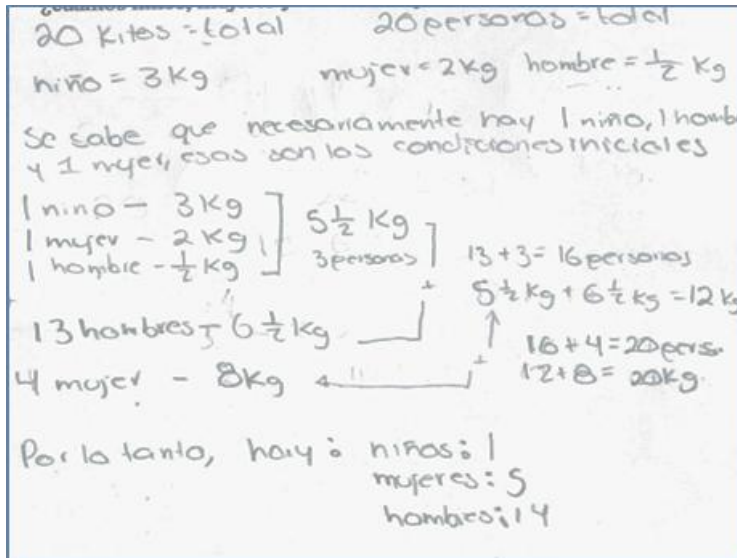 20 Kilos = total 20 personas = total
niño = 3 Kg mujer = 2 Kg hombre = 1/2 Kg
se sabe que necesariamente hay 1 niño, 1 homb
y 1 mujer, esas son las condiciones iniciales
1 nino - 3 Kg
1 mujer - 2 Kg
1 hombre - 1/2 Kg
5 1/2 Kg
3 personas
13 + 3 = 16 personas
5 1/2 Kg + 6 1/2 Kg = 12 Kg
+
13 hombres - 6 1/2 Kg
+
16 + 4 = 20 pers.
12 + 8 = 20 Kg.
4 mujer - 8 Kg
Por lo tanto, hay: niños: 1
mujeres: 5
hombres: 14